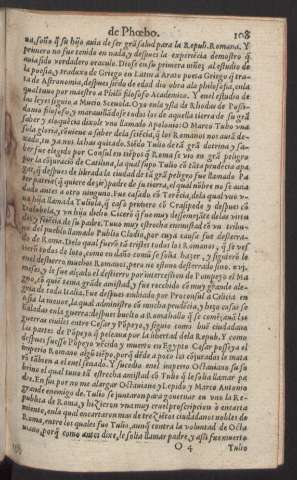 de Phœbo. 108
ua, soñó q̃ su hijo auia de ser grã salud para la Repub. Romana. Y
primero no fue tenido en nada, y despues la experiẽcia demostro q̃
auia sido verdadero oraculo. Diose en su primera niñez al estudio de
la poesia, y traduxo de Griego en Latin a Arato poeta Griego q̃ tra-
ta de Astronomia, despues siẽdo de edad dio obra ala philosofia, en la
qual tuuo por maestro a Philõ filosofo Academico. Y en el estudio de
las leyes siguio a Mucio Sceuola. O yo en la ysla de Rhodas de Possi-
donio filosofo, y marauillado se todos los de aquella tierra de su grã
saber y eloquẽcia dixole vno llamado Apolonio: O Marco Tulio vna
sola gloria, cõuiene a saber de la sciẽcia, q̃ los Romanos nos auiã de-
xado, tu ya nos la has quitado. Siẽdo Tulio de tã grã dotrina y sa-
ber fue elegido por Consul en tiẽpo q̃ Roma se vio en grã peligro
por la cõjuraciõ de Catilina, la qual supo Tulio cõ tãta prudẽcia apa-
gar, q̃ despues de librada la ciudad de tã grã peligro fue llamado Pa-
ter patrie (q̃ quiere dezir) padre de su tierra, el qual nõbre no se auia
dado antes a otro ninguno. Fue casado cõ Terẽcia, dela qual vuo v-
na hija llamada Tuliola, q̃ casó primero cõ Crassipedo y despues cõ
Dolobela, y vn hijo dicho Cicero q̃ fue muy dessemejãte delas virtu
des, y sciẽcia de su padre. Tuuo muy estrecha enemistad cõ vn tribu-
no del pueblo llamado Publio Clodio, por cuya causa fue desterra-
do de Roma. Delo qual fuerõ tã tristes todos los Romanos, q̃ se ves
tierõ todos de luto, como en daño comũ se solia hazer, y siguierõ lo
enel destierro muchos Romanos, pero no estuuo desterrado sino. xvj.
meses, y le fue alçado el destierro por intercession de Pompeyo el Ma
gno, cõ quiẽ tenia grãde amistad, y fue recebido cõ muy grande ale-
gria de toda Italia. Fue despues embiado por Proconsul a Cilicia en
Asia la menor, la qual administro cõ mucha prudẽcia, y hizo cosas se
ñaladas enla guerra: despues buelto a Roma hallo q̃ se començauã las
guerras ciuiles entre Cesar y Põpeyo, y siguio como buẽ ciudadano
las partes de Põpeyo q̃ peleaua por la libertad dela Repub. Y como
despues fuesse Põpeyo vẽcido y muerto en Egypto Cesar posseyo el
imperio Romano algũ tiẽpo, porq̃ dẽde a poco los cõjurados le mata
rõ tãbien a el enel senado. Y succedio enel imperio Octauiano su so-
brino el qual tuuo tã estrecha amistad cõ Tulio q̃ le solia llamar pa-
dre. En fin por no me alargar Octauiano y Lepido y Marco Antonio
grande enemigo de Tulio se juntaron para gouernar en vno la Re-
publica de Roma, y hizieron vna muy cruel proscripcion o encarta
miento, enla qual encartaron mas de trezientos ciudadanos nobles de
Roma, entre los quales fue Tulio, aunq̃ contra la voluntad de Octa
uiano, porq̃ como antes dixe, le solia llamar padre, y assi fue muerto
O 4 Tulio